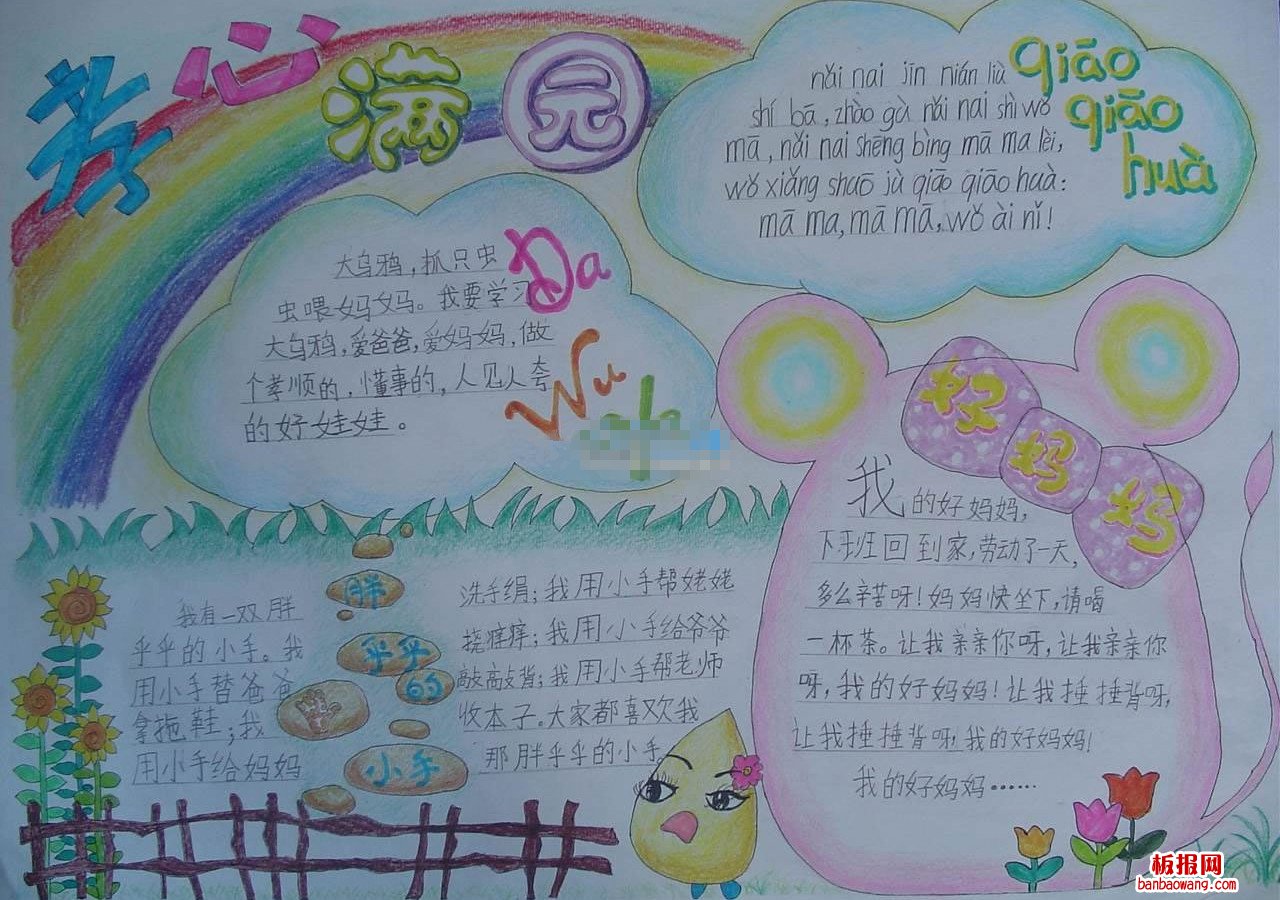 孝心满园
nǎi nai jīn nián liù
shí bā, zhào gù nǎi nai shì wǒ
mā, nǎi nai shēng bìng mā ma lèi,
wǒ xiǎng shuō jù qiāo qiāo huà:
mā ma, mā mā, wǒ ài nǐ!
qiāo
qiāo
huà
大乌鸦，抓只虫
虫喂妈妈。我要学习
大乌鸦，爱爸爸，爱妈妈，做
个孝顺的，懂事的，人见人夸
的好娃娃。
Da
Wu
好妈妈
我的好妈妈，
下班回到家，劳动了一天，
多么辛苦呀！妈妈快坐下，请喝
一杯茶。让我亲亲你呀，让我亲亲你
呀，我的好妈妈！让我捶捶背呀，
让我捶捶背呀！我的好妈妈！
我的好妈妈……
胖
乎乎
的
小手
我有一双胖
乎乎的小手。我
用小手替爸爸
拿拖鞋；我
用小手给妈妈
洗手绢；我用小手帮姥姥
挠痒痒；我用小手给爷爷
敲敲背；我用小手帮老师
收本子。大家都喜欢我
那胖乎乎的小手
板报网
banbaowang.com